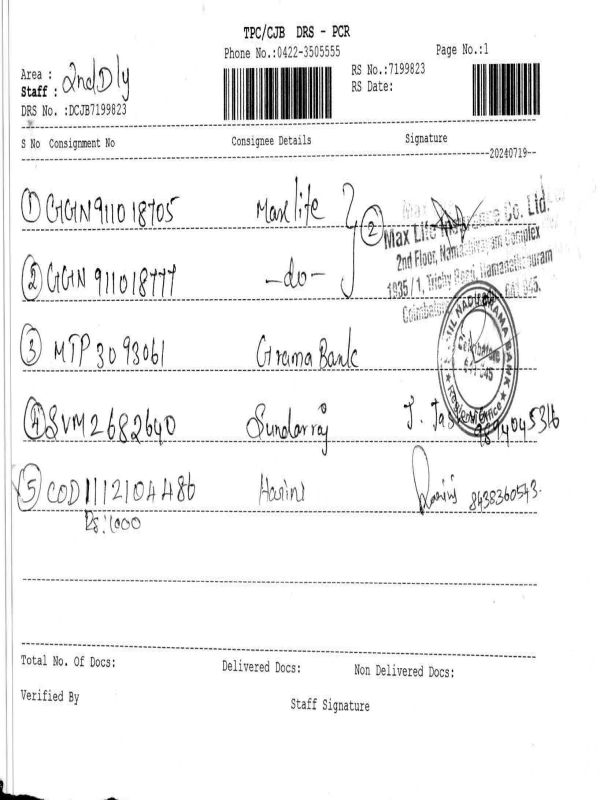 TPC/CJB DRS - PCR
Phone No.:0422-3505555
Page No.:1
Area :
Staff :
2nd Dly
RS No.:7199823
RS Date:
DRS No. :DCJB7199823
S No Consignment No Consignee Details Signature
20240719
1 GGN911018705 Maxlife 2
2 GGN 911018777 -do-
Max Life Insurance Co. Ltd.
2nd Floor, Complex
1935 / 1, Trichy Road, Ramanathapuram
Coimbatore 641 045.
3 MTP3093061 Grama Bank
TAMIL NADU GRAMA BANK
Coimbatore
641 045
Regional Office
4 SVM2682640 Sundarraj J. 9894045316
5 COD1112104486 Harini Harini 8438360543.
Rs:1000
Total No. Of Docs: Delivered Docs: Non Delivered Docs:
Verified By Staff Signature